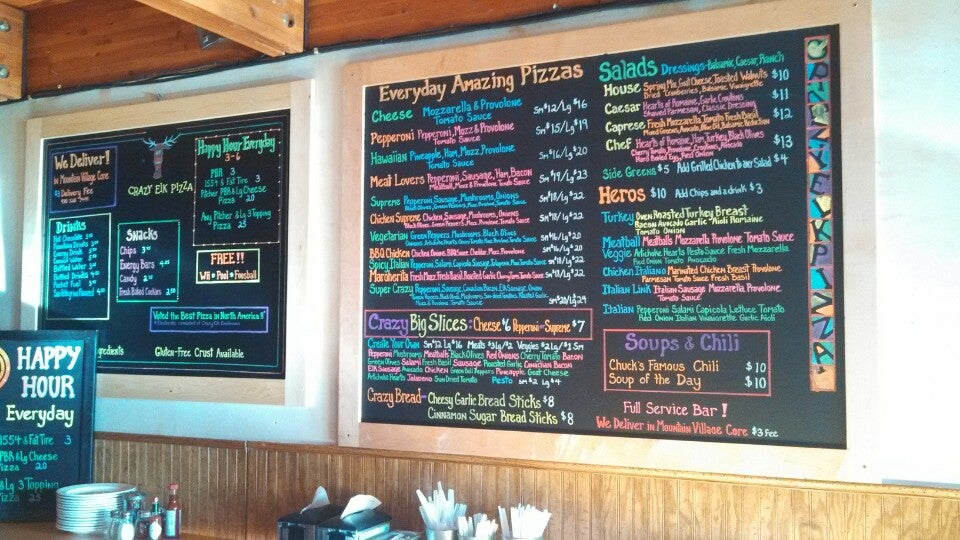 We Deliver!
in Mountain Village Core
$3 Delivery Fee
CRAZY ELK PIZZA
Happy Hour Everyday
3-6
PBR 3
1554 & Fat Tire 3
Pitcher PBR & Lg Cheese
Pizza 20
Any Pitcher & Lg 3 Topping
Pizza 25
Drinks
Hot Chocolate
Energy Drink
Bottled Water
Bottled Drinks
Rocket Fuel
Snacks
Chips
Energy Bars
Candy
Fresh Baked Cookies
FREE!!
Wifi • Pool • Foosball
Voted the Best Pizza in North America!!*
Gluten-Free Crust Available
HAPPY
HOUR
Everyday
1554 & Fat Tire 3
PBR & Lg Cheese
Pizza 20
& Lg 3 Topping
Pizza 25
Everyday Amazing Pizzas
Cheese Mozzarella & Provolone Sm $12/Lg $16
Tomato Sauce
Pepperoni Pepperoni, Mozz & Provolone Sm $15/Lg $19
Tomato Sauce
Hawaiian Pineapple, Ham, Mozz, Provolone Sm $16/Lg $20
Tomato Sauce
Meat Lovers Pepperoni, Sausage, Ham, Bacon Sm $19/Lg $23
Meatball, Mozz & Provolone, Tomato Sauce
Supreme Pepperoni, Sausage, Mushrooms, Onions Sm $18/Lg $22
Black Olives, Green Peppers, Mozz, Provolone, Tomato Sauce
Chicken Supreme Chicken, Sausage, Mushrooms, Onions Sm $18/Lg $22
Black Olives, Green Peppers, Mozz, Provolone, Tomato Sauce
Vegetarian Green Peppers, Mushrooms, Black Olives Sm $16/Lg $20
BBQ Chicken Chicken, Onions, BBQ Sauce, Cheddar, Mozz, Provolone Sm $18/Lg $22
Spicy Italian Pepperoni, Salami, Capicola, Sausage, Jalapenos, Mozz, Tomato Sauce Sm $18/Lg $22
Margherita Fresh Mozz, Fresh Basil, Roasted Garlic, Cherry Toms, Tomato Sauce Sm $18/Lg $22
Super Crazy Pepperoni, Sausage, Canadian Bacon, Elk Sausage, Onion
Sm $20/Lg $24
Crazy Big Slices: Cheese $6 Pepperoni or Supreme $7
Create Your Own Sm $12 Lg $16 Meats $3/$4 Veggies $2 Lg/$1 Sm
Pepperoni Mushrooms Meatballs Black Olives Red Onions Cherry Tomato Bacon
Green Olives Salami Fresh Basil Sausage Roasted Garlic Canadian Bacon
Elk Sausage Avocado Chicken Green Bell Peppers Pineapple Goat Cheese
Artichoke Hearts Jalapeno Sun Dried Tomato Pesto Sm $2 Lg $4
Crazy Bread- Cheesy Garlic Bread Sticks $8
Cinnamon Sugar Bread Sticks $8
Salads Dressings- Balsamic, Caesar, Ranch
House Spring Mix, Goat Cheese, Toasted Walnuts $10
Dried Cranberries, Balsamic Vinaigrette
Caesar Hearts of Romaine, Garlic Croutons $11
Shaved Parmesan, Classic Dressing
Caprese Fresh Mozzarella, Tomato, Fresh Basil $12
Mixed Greens, Avocado, Olive Oil, Balsamic Reduction
Chef Hearts of Romaine, Ham, Turkey, Black Olives $13
Cherry Tomato, Provolone, Croutons, Avocado
Hard Boiled Egg, Red Onion
Side Greens $5 Add Grilled Chicken to any Salad $4
Heros $10 Add Chips and a drink $3
Turkey Oven Roasted Turkey Breast
Bacon Avocado Garlic Aioli Romaine
Tomato Onion
Meatball Meatballs Mozzarella Provolone Tomato Sauce
Veggie Artichoke Hearts Pesto Sauce Fresh Mozzarella
Red Onion Tomato Avocado
Chicken Italiano Marinated Chicken Breast Provolone
Parmesan Tomato Sauce Fresh Basil
Italian Link Italian Sausage Mozzarella Provolone
Tomato Sauce
Italian Pepperoni Salami Capicola Lettuce Tomato
Red Onion Italian Vinaigrette Garlic Aioli
Soups & Chili
Chuck's Famous Chili $10
Soup of the Day $10
Full Service Bar!
We Deliver in Mountain Village Core $3 Fee
CRAZY ELK PIZZA